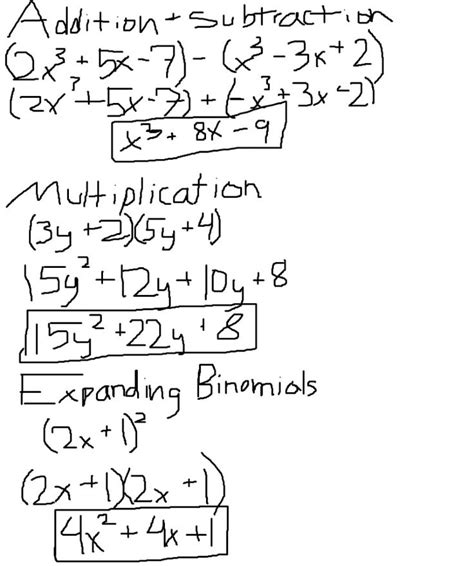 Addition + Subtraction
(2x³ + 5x - 7) - (x³ - 3x + 2)
(2x³ + 5x - 7) + (-x³ + 3x - 2)
x³ + 8x - 9
Multiplication
(3y + 2)(5y + 4)
15y² + 12y + 10y + 8
15y² + 22y + 8
Expanding Binomials
(2x + 1)²
(2x + 1)(2x + 1)
4x² + 4x + 1